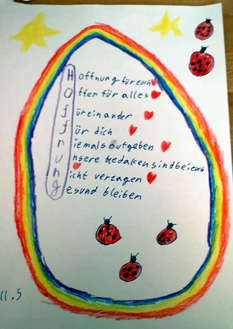 Hoffnung für euch
offen für alles
füreinander
für dich
niemals aufgeben
unsere Gedanken sind bei euch
nicht verzagen
gesund bleiben